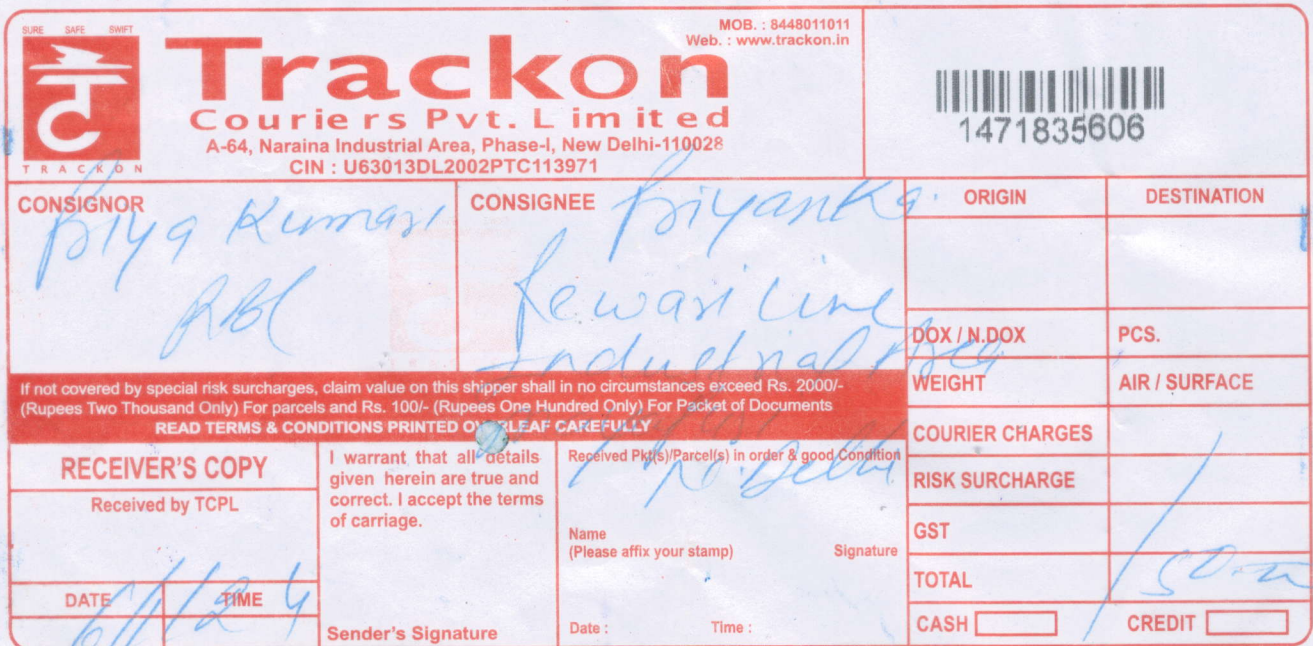 SURE SAFE SWIFT
TRACKON
Trackon
Couriers Pvt. Limited
A-64, Naraina Industrial Area, Phase-I, New Delhi-110028
CIN : U63013DL2002PTC113971
MOB. : 8448011011
Web. : www.trackon.in
1471835606
CONSIGNOR
Priya Kumari
RBL
CONSIGNEE
Priyanka
Rewari Line
Industrial Area
N. Delhi
ORIGIN
DESTINATION
DOX / N.DOX
PCS.
WEIGHT
AIR / SURFACE
COURIER CHARGES
RISK SURCHARGE
GST
TOTAL
CASH
CREDIT
If not covered by special risk surcharges, claim value on this shipper shall in no circumstances exceed Rs. 2000/-
(Rupees Two Thousand Only) For parcels and Rs. 100/- (Rupees One Hundred Only) For Packet of Documents
READ TERMS & CONDITIONS PRINTED OVERLEAF CAREFULLY
RECEIVER'S COPY
Received by TCPL
DATE
TIME
6/1/24
I warrant that all details
given herein are true and
correct. I accept the terms
of carriage.
Sender's Signature
Received Pkt(s)/Parcel(s) in order & good Condition
Name
(Please affix your stamp)
Signature
Date :
Time :